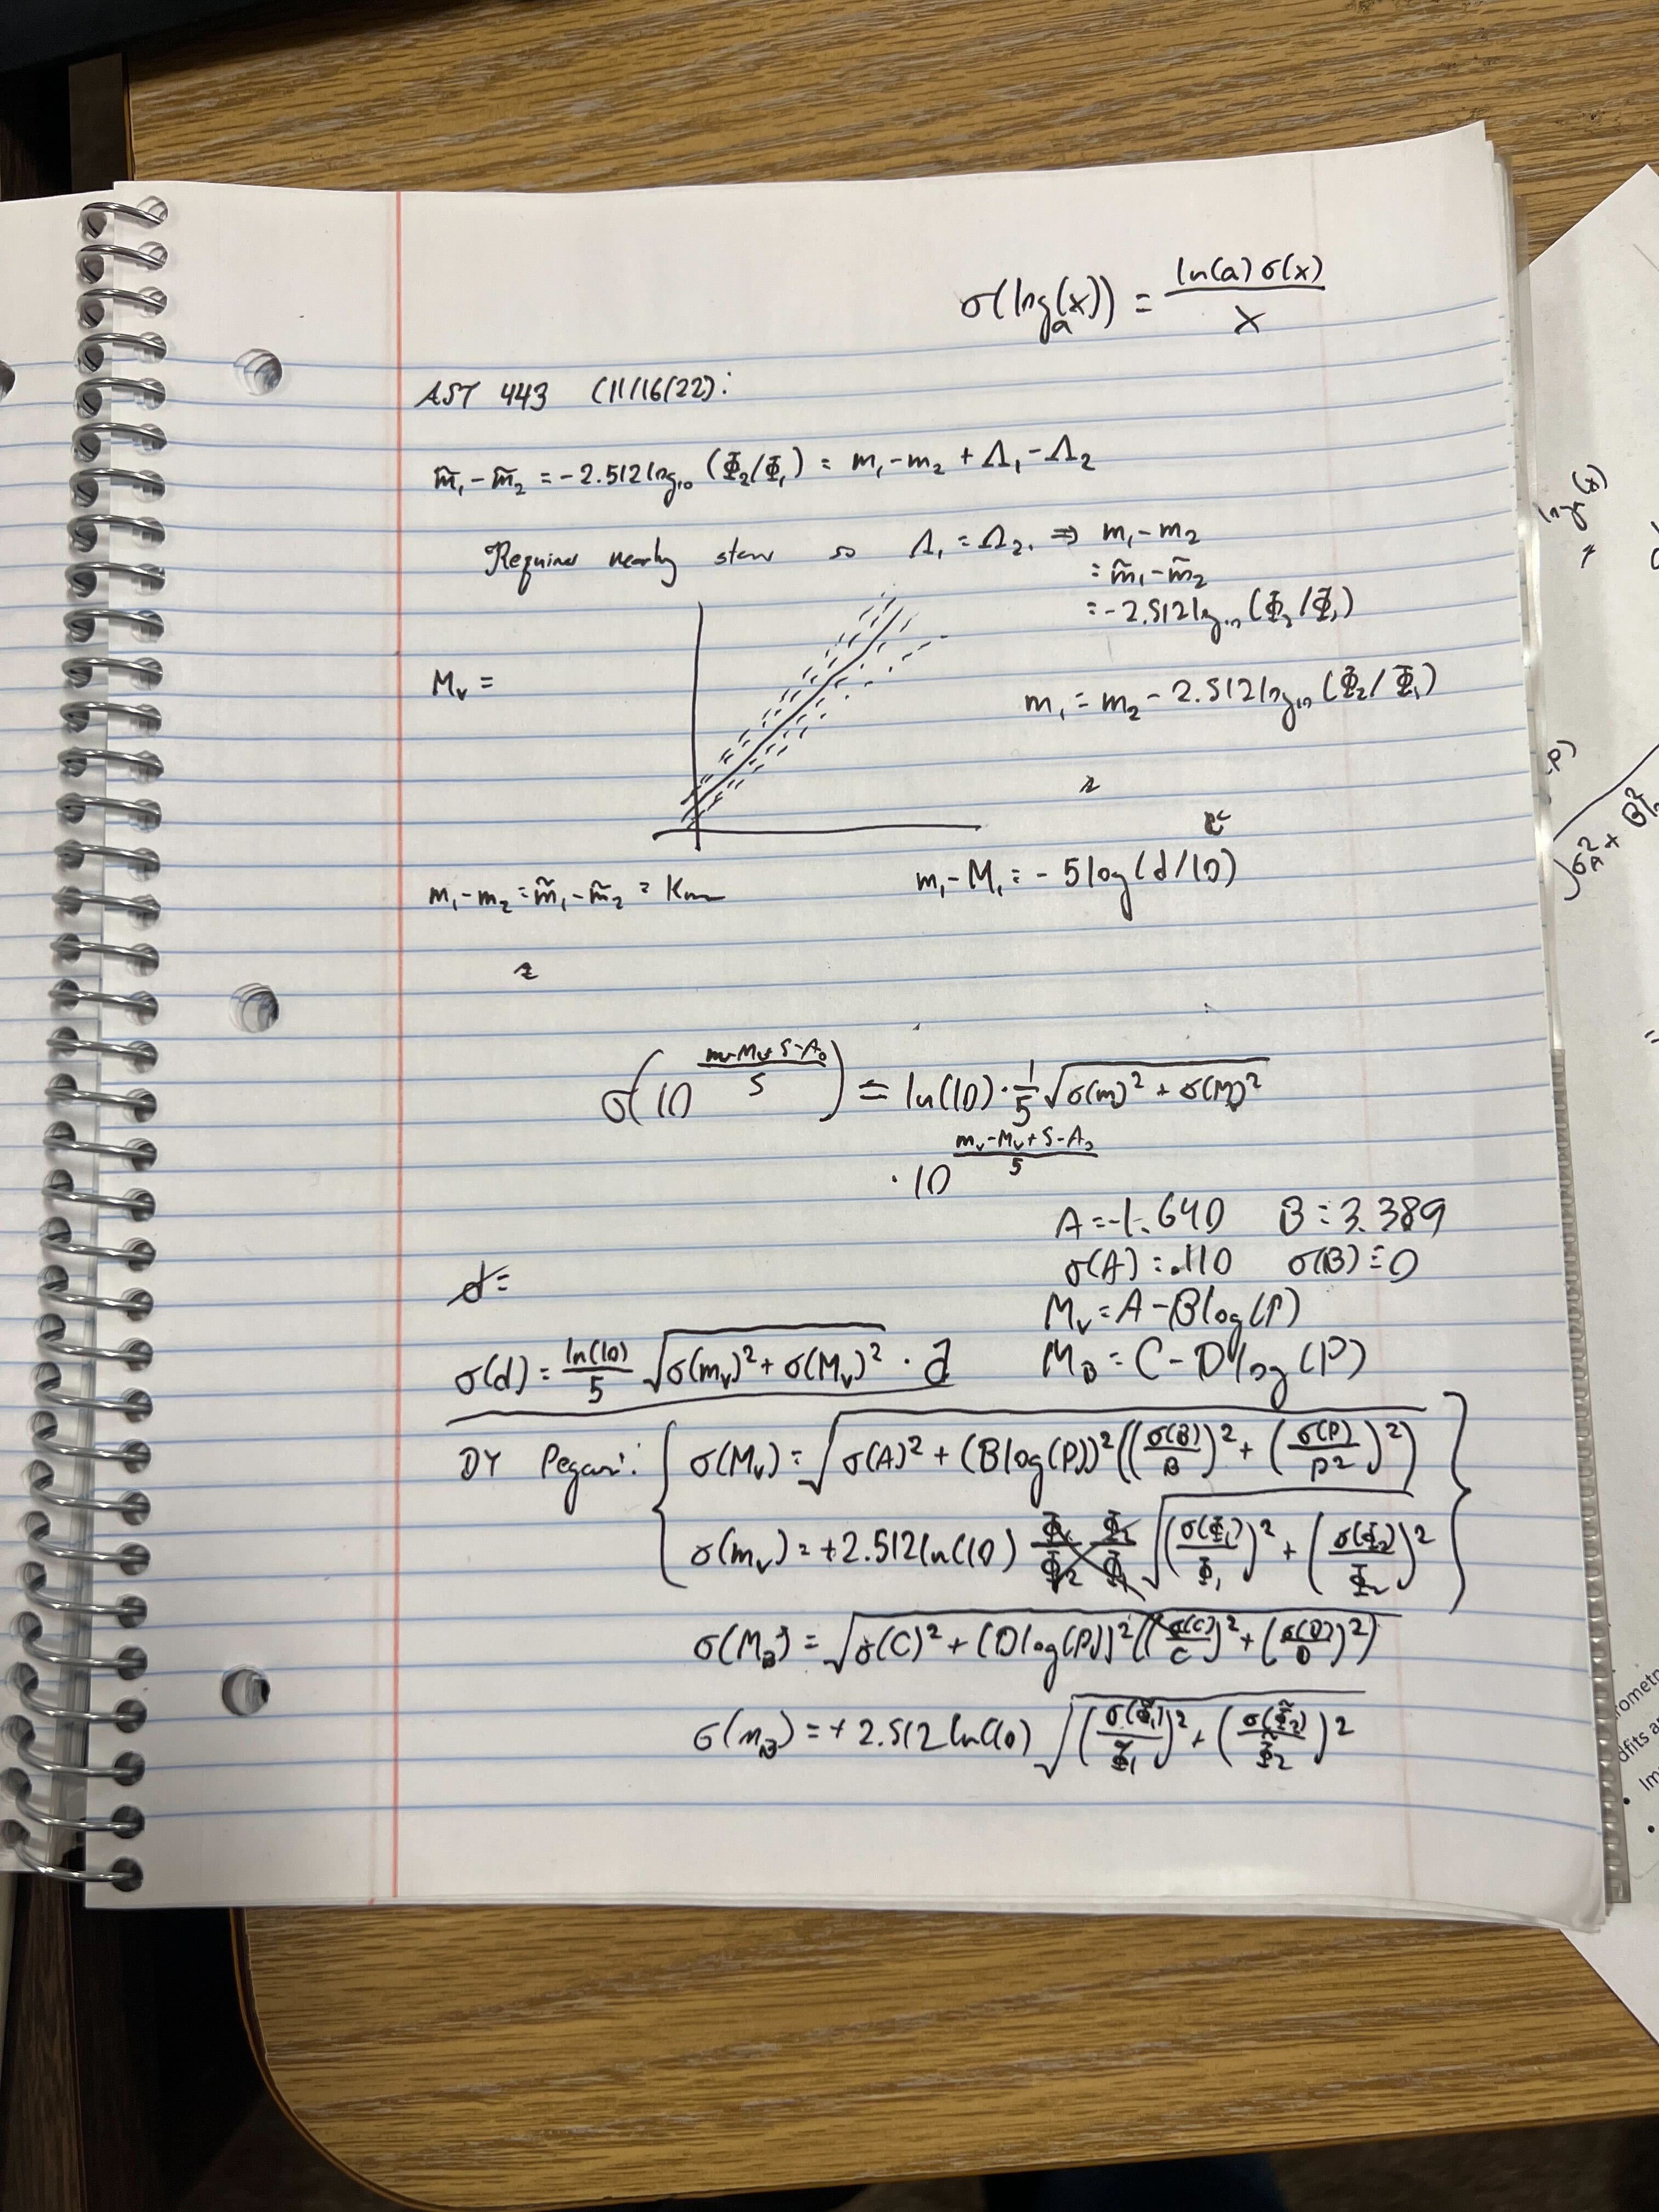 σ(log_a(x)) = ln(a) σ(x) / x
AST 443 (11/16/22):
m̃₁ - m̃₂ = -2.512 log₁₀ (Φ₂/Φ₁) = m₁ - m₂ + Λ₁ - Λ₂
nearby so Λ₁ = Λ₂. ⇒ m₁ - m₂
= m̃₁ - m̃₂
= -2.512 log₁₀ (Φ₂/Φ₁)
M_v =
m₁ = m₂ - 2.512 log₁₀ (Φ₂/Φ₁)
m₁ - m₂ = m̃₁ - m̃₂ =
m₁ - M₁ = -5 log(d/10)
σ(10^((m_v - M_v + 5 - A_0)/5)) = ln(10) · 1/5 √(σ(m)² + σ(M)²)
· 10^((m_v - M_v + 5 - A_0)/5)
A = -1.640 B = 3.389
σ(A) = .110 σ(B) = 0
d =
M_v = A - B log(P)
σ(d) = ln(10)/5 √(σ(m_v)² + σ(M_v)²) · d
M_B = C - D log(P)
DY Pegasi: { σ(M_v) = √(σ(A)² + (B log(P))² ((σ(B)/B)² + (σ(P)/P²)²)) }
σ(m_v) = +2.512 ln(10) √((σ(Φ₁)/Φ₁)² + (σ(Φ₂)/Φ₂)²)
σ(M_B) = √(σ(C)² + (D log(P))² ((σ(C)/C)² + (σ(D)/D)²))
σ(m_B) = +2.512 ln(10) √((σ(Φ̃₁)/Φ̃₁)² + (σ(Φ̃₂)/Φ̃₂)²)